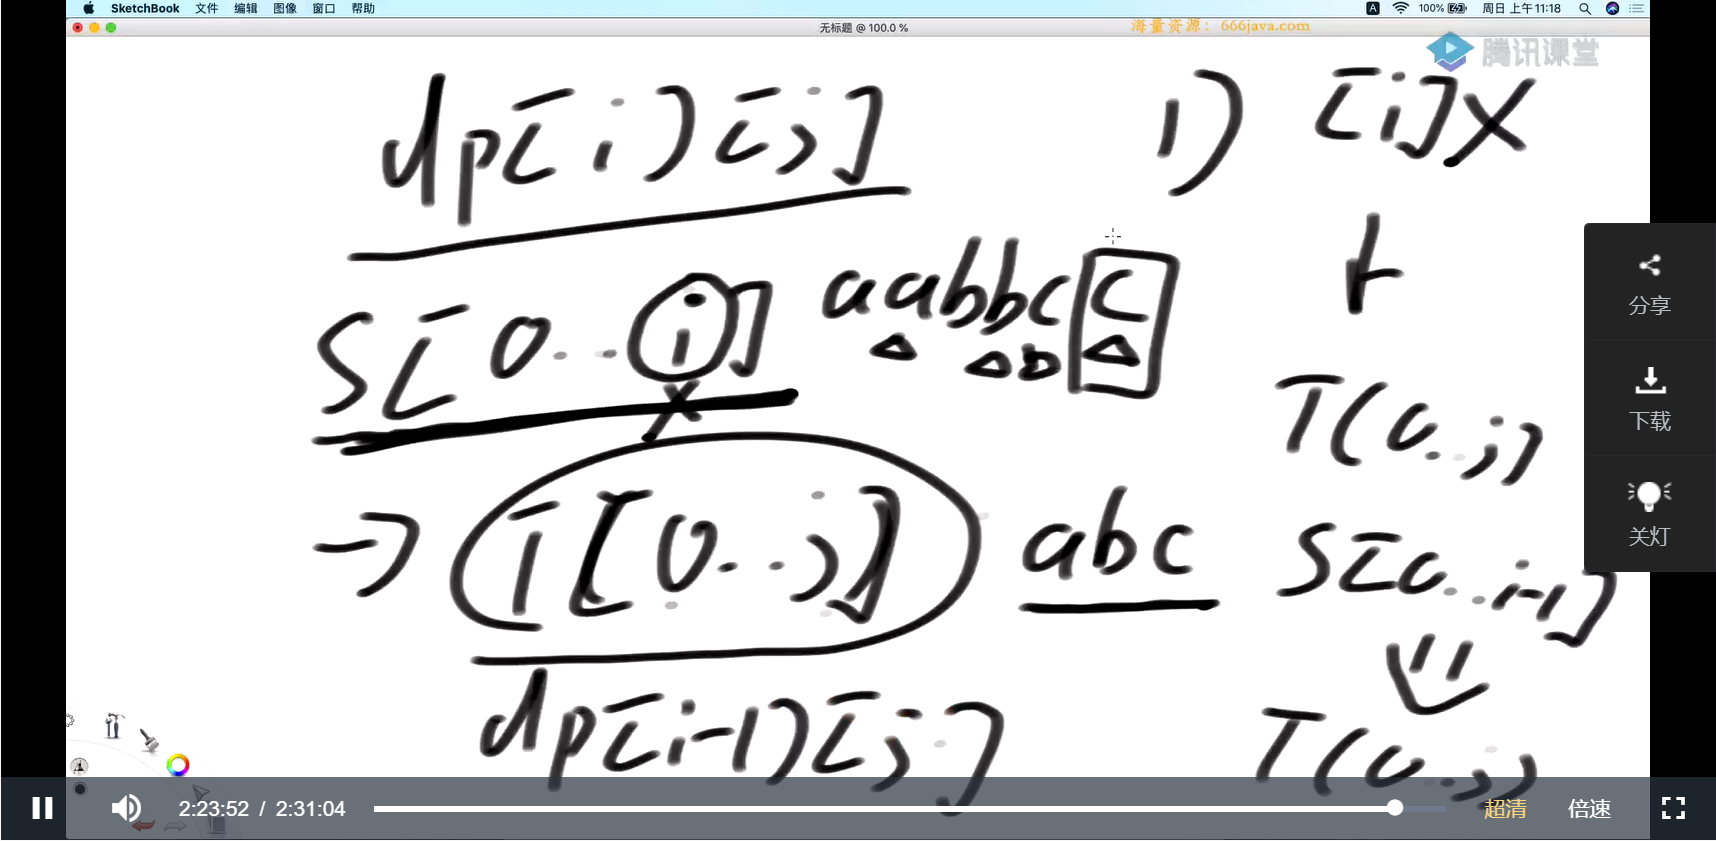 SketchBook 文件 编辑 图像 窗口 帮助
A 100% 周日 上午11:18
无标题 @ 100.0 %
海量资源：666java.com
腾讯课堂
dp[i][j]
1) [i]X
S[0...i]
X
aabbcc
T(0..j)
→ i[0..j]
abc
S[0..i-1]
dp[i-1][j]
T(0..j)
分享
下载
关灯
2:23:52 / 2:31:04
超清 倍速